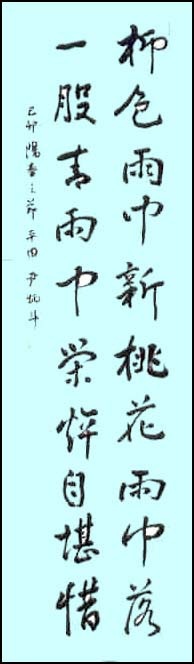 柳色雨中新桃花雨中落
一般春雨中榮悴自堪惜
己卯陽春之節 平田 尹炳斗